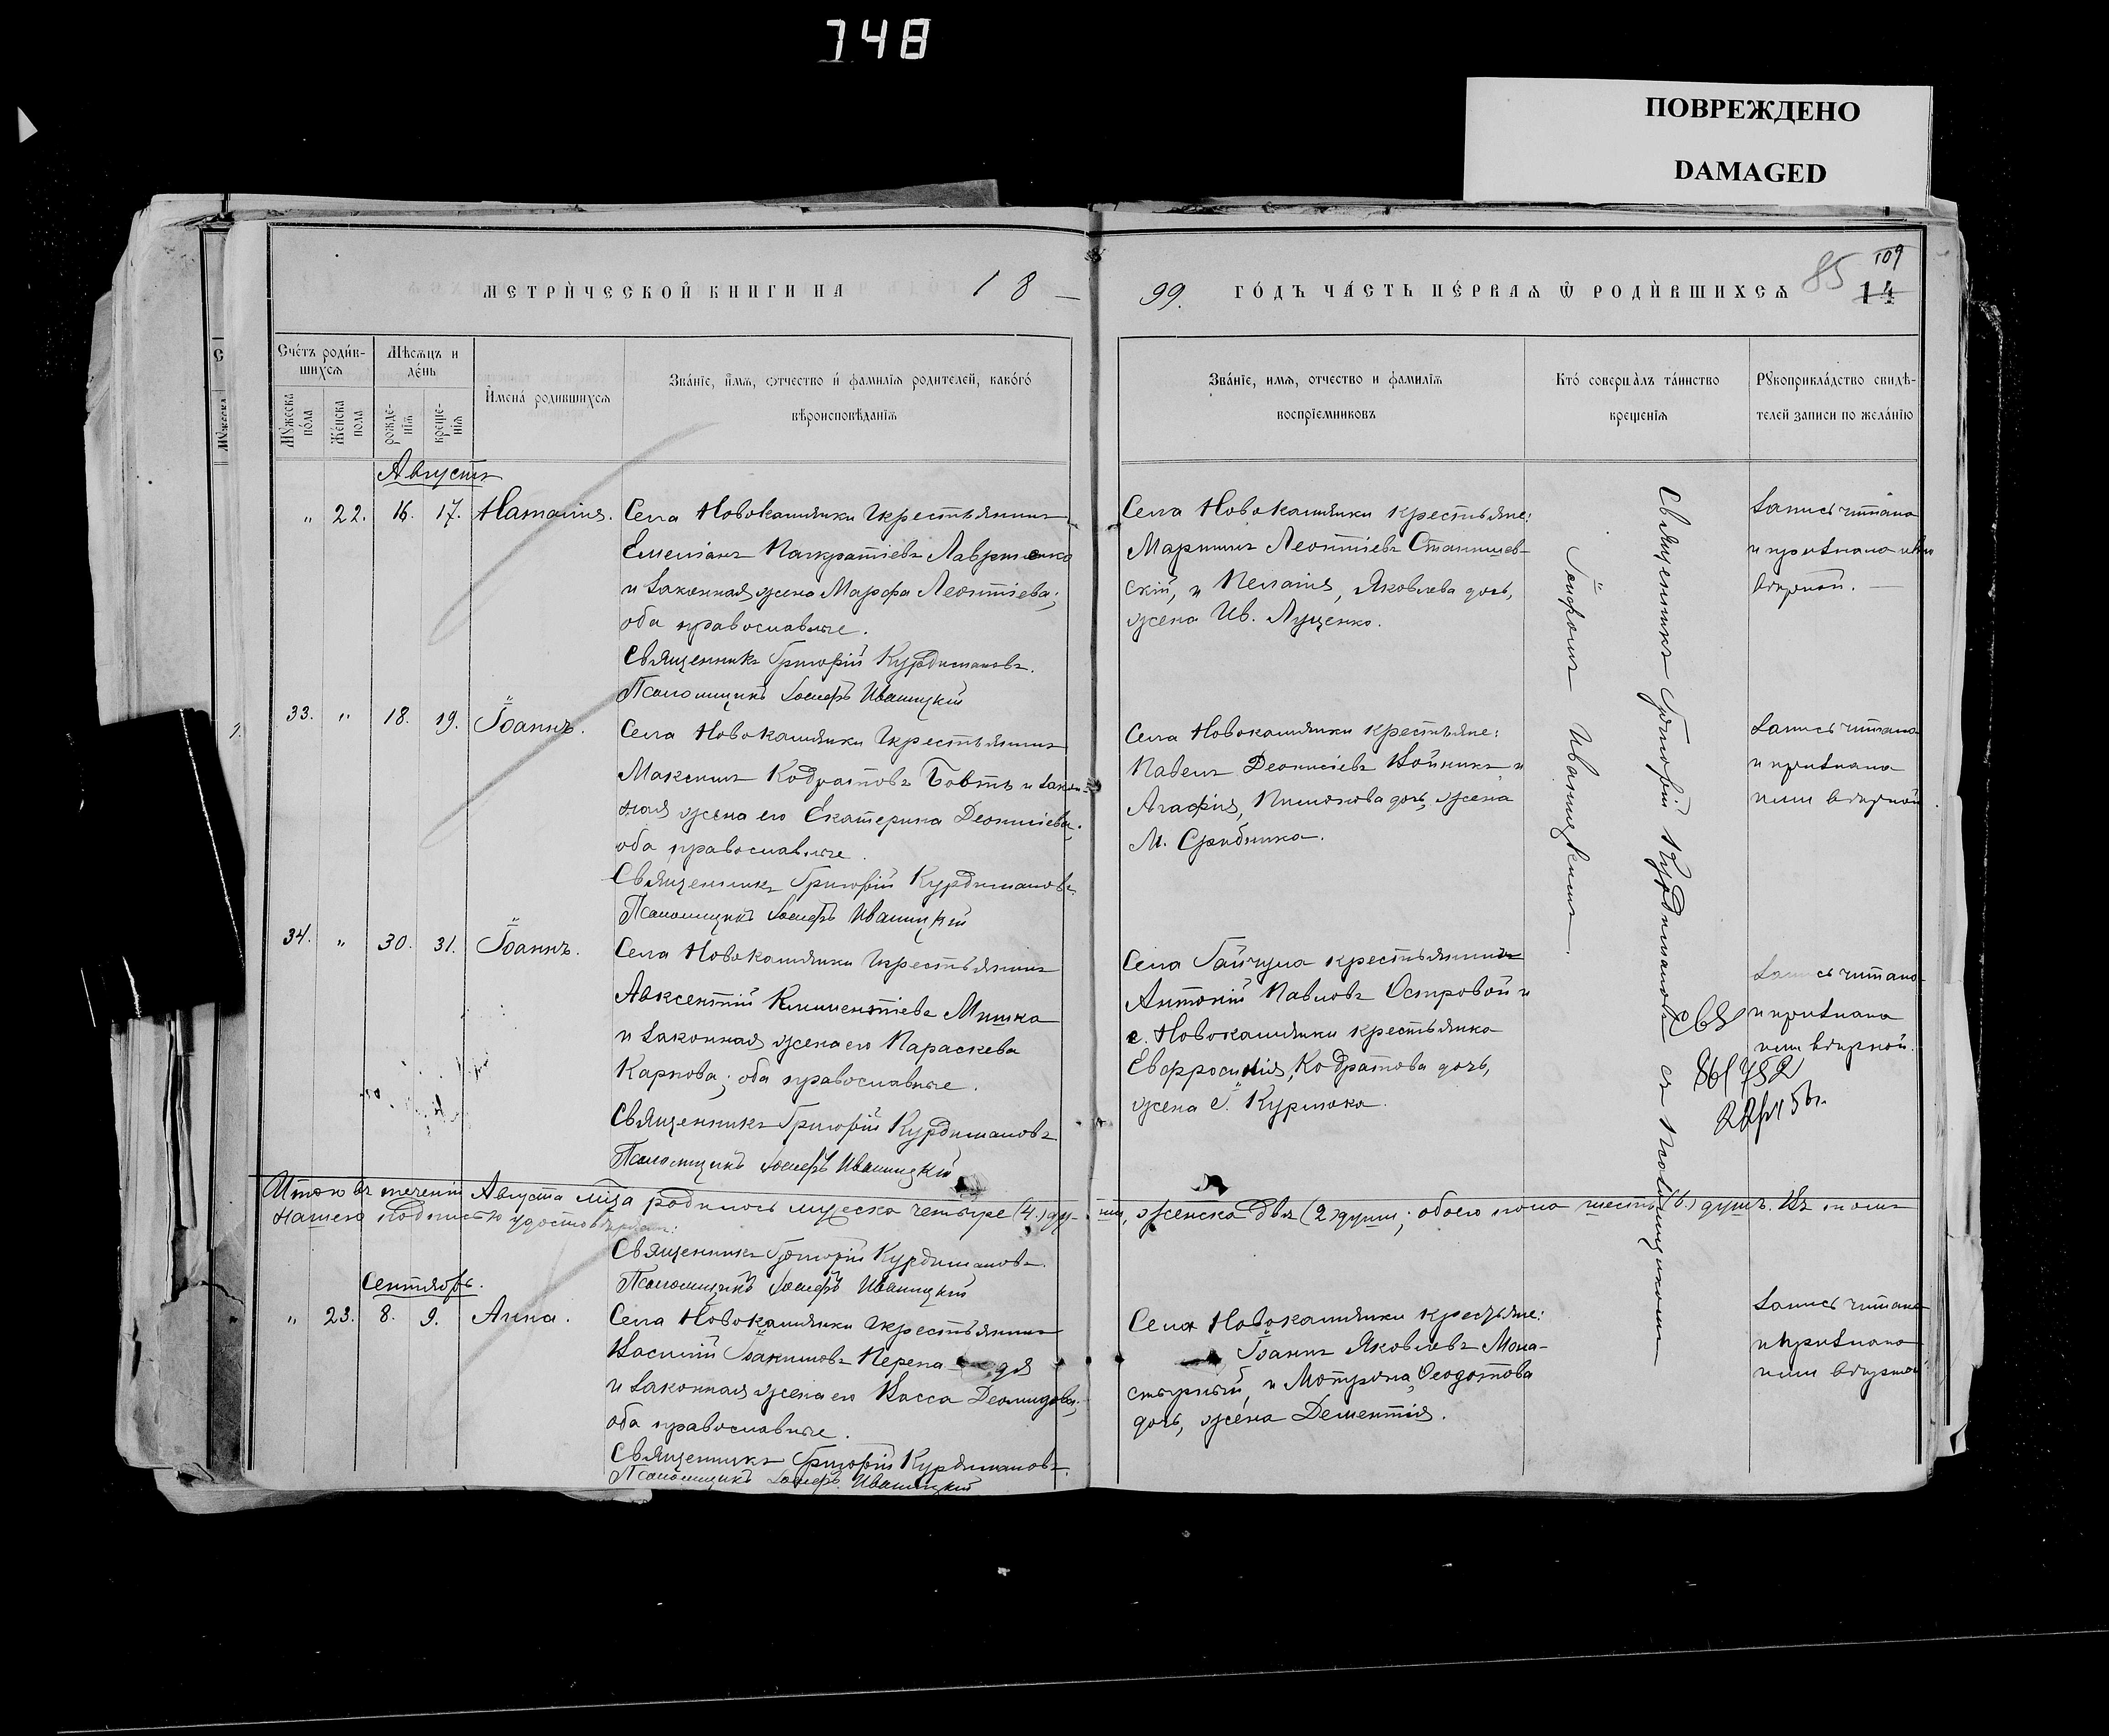 748
ПОВРЕЖДЕНО
DAMAGED
МЕТРИ́ЧЕСКОЙ КНИГИ НА 18 —
99. ГО́ДЪ ЧА́СТЬ ПЕ́РВАѦ Ѿ РОДИ́ВШИХСѦ
85 109
14
Сче́тъ роди́в-
шихсѧ
Мѣсѧцъ и
де́нь
Мꙋжеска
по́ла
Же́нска
пола
рожде-
нїѧ
креще-
нїѧ
И҆мена́ родившихсѧ
Зва́нїе, и҆́мѧ, ѻтчество и҆ фамилїѧ родителей, како́го́
вѣроисповѣ́данїѧ
Зва́нїе, имѧ, отчество и фамилїѧ
воспрїемниковъ
Кто́ соверша̀лъ та́инство
крещенїѧ
Рꙋкоприкла́дство свидѣ́-
телей записи по жела́нїю
Августъ
" 22. 16. 17. Наталія.
Села Новокамянки крестьянинъ
Емеліанъ Панкратіевъ Лавриненко
и законная жена Марфа Леонтіева;
оба православные.
Священникъ Григорій Курдимановъ.
Псаломщикъ Іосифъ Иваницкій
Села Новокамянки крестьяне:
Мартинъ Леонтіевъ Станишев-
скій, и Пелагія, Яковлева дочь,
жена Ив. Луценко.
Запись читана
и признана
вѣрной. —
33. " 18. 19. Іоаннъ.
Села Новокамянки крестьянинъ
Максимъ Кодратовъ Бовтъ и закон-
ная жена его Екатерина Деонисіева;
оба православные.
Священникъ Григорій Курдимановъ.
Псаломщикъ Іосифъ Иваницкій
Села Новокамянки крестьяне:
Павелъ Деонисіевъ и
Агафія, Пимонова дочь, жена
М. Срибника.
Запись читана
и признана
ими вѣрной
34. " 30. 31. Іоаннъ.
Села Новокамянки крестьянинъ
Авксентій Климентіевъ Мишка
и законная жена его Параскева
Карпова; оба православные.
Священникъ Григорій Курдимановъ
Псаломщикъ Іосифъ Иваницкій
Села Гайчула крестьянинъ
Антоній Павловъ Островой и
с. Новокамянки крестьянка
Евфросинія, Кодратова дочь,
жена
Запись читана
и признана
ими вѣрной.
Священникъ Григорій Курдимановъ съ Псаломщикомъ
Іосифомъ Иваницкимъ.
Итого въ теченіи Августа мѣсяца родилось мужеска четыре (4) ду- ши, женска двѣ (2) души; обоего пола шесть (6.) душъ. Въ томъ
нашею подписью удостовѣряемъ:
Священникъ Григорій Курдимановъ.
Псаломщикъ Іосифъ Иваницкій
Сентябрь.
" 23. 8. 9. Анна.
Села Новокамянки крестьянинъ
Василій Іоакимовъ
и законная жена его Васса Деомидова;
оба православные.
Священникъ Григорій Курдимановъ.
Псаломщикъ Іосифъ Иваницкій
Села Новокамянки крестьяне:
Іоаннъ Яковлевъ Мона-
стырный, и Мотрона, Ѳеодотова
дочь, жена Дементія.
Запись читана
и признана
ими вѣрной